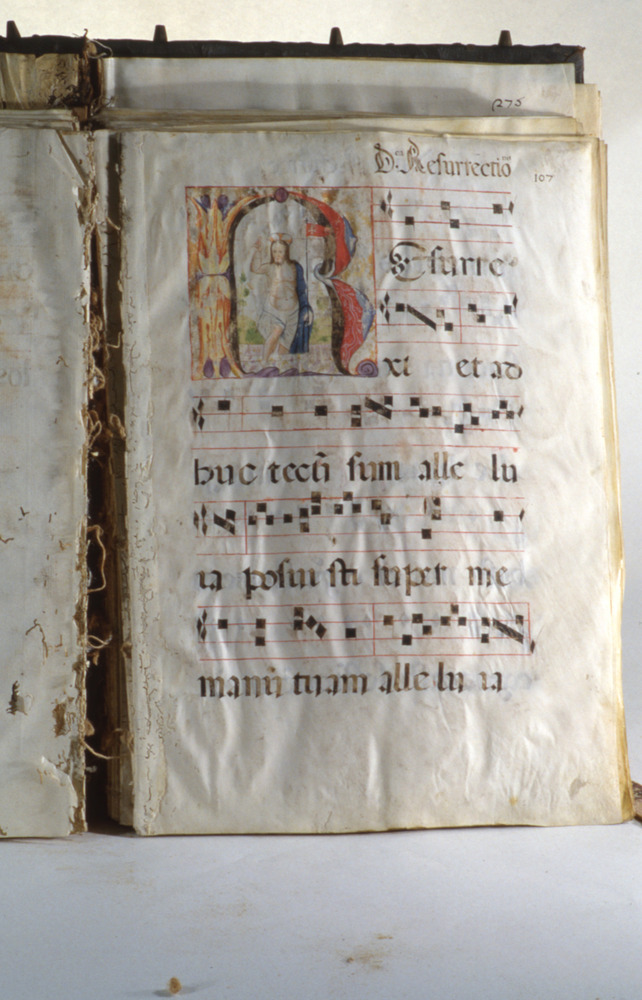 275
Dn̄ica Resurrectio
107
REsurre
xi et ad
huc tecū sum alle lu
ia posui sti super me
manū tuam alle lu ia